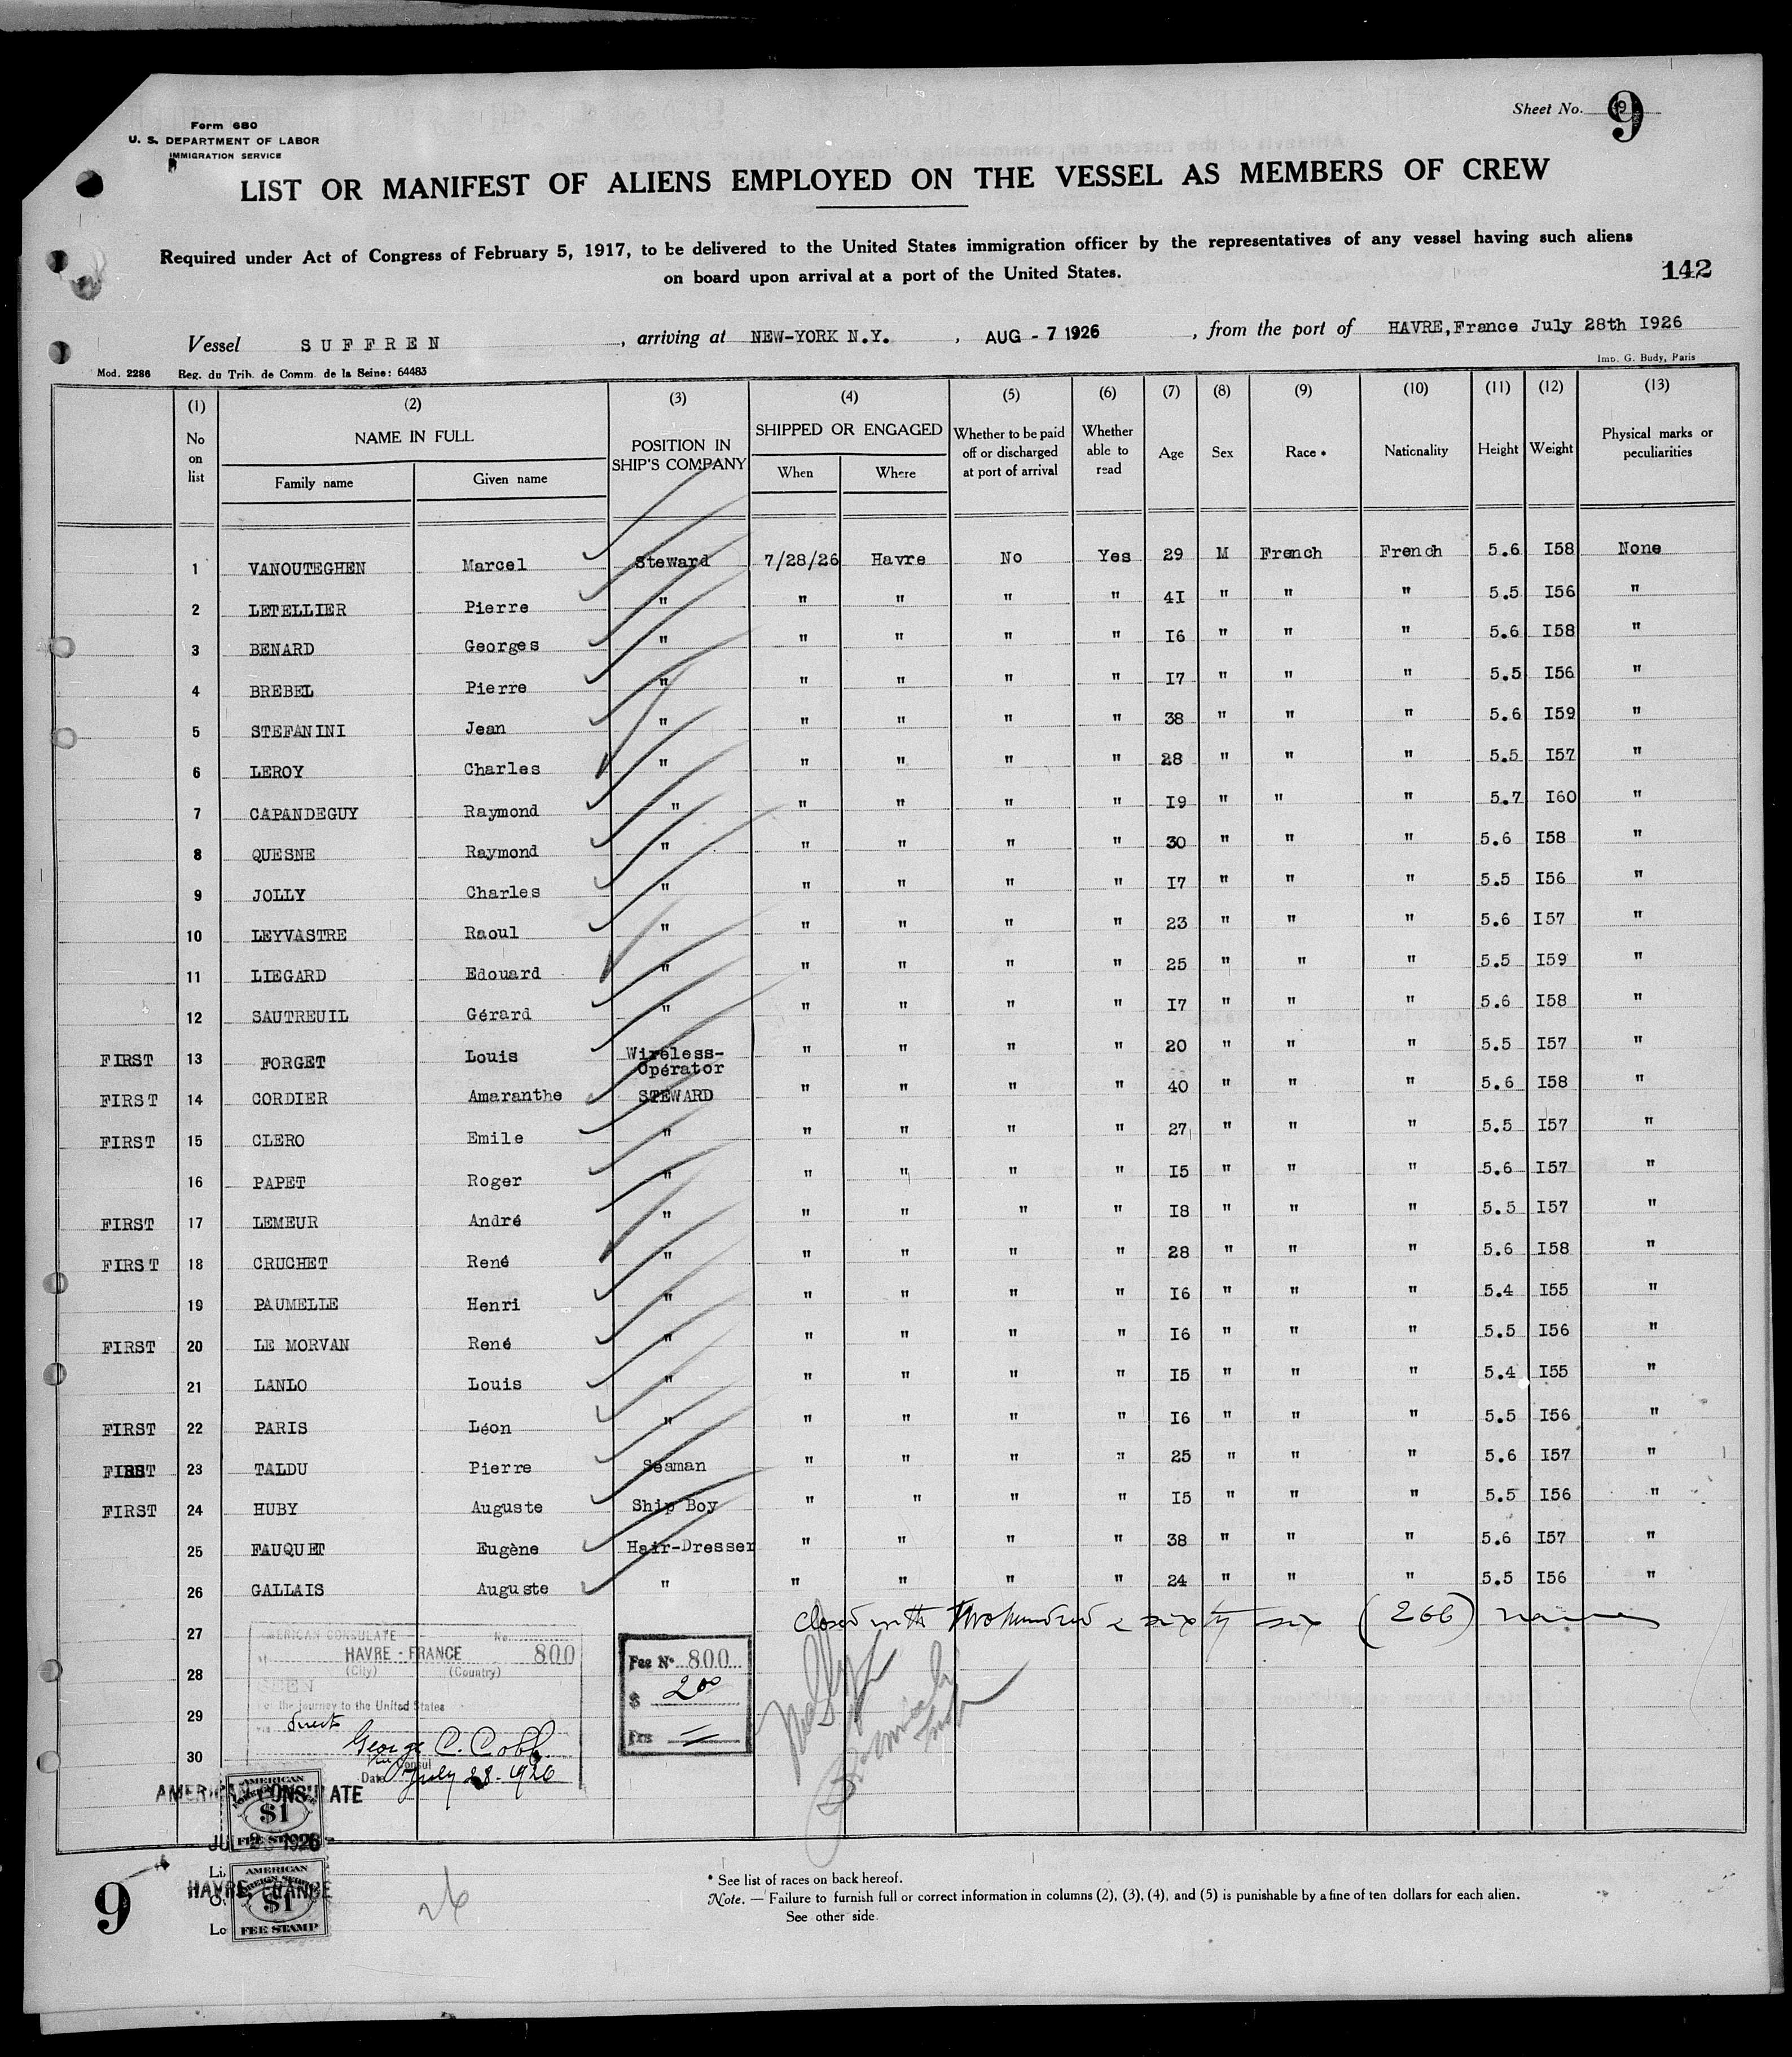 Form 680
U. S. DEPARTMENT OF LABOR
IMMIGRATION SERVICE
Sheet No. 9
9
LIST OR MANIFEST OF ALIENS EMPLOYED ON THE VESSEL AS MEMBERS OF CREW
Required under Act of Congress of February 5, 1917, to be delivered to the United States immigration officer by the representatives of any vessel having such aliens
on board upon arrival at a port of the United States.
142
Vessel SUFFREN, arriving at NEW-YORK N.Y., AUG - 7 1926, from the port of HAVRE, France July 28th I926
Imp. G. Budy, Paris
Mod. 2286 Reg. du Trib. de Comm. de la Seine: 64483
(1) (2) (3) (4) (5) (6) (7) (8) (9) (10) (11) (12) (13)
No on list NAME IN FULL Family name Given name POSITION IN SHIP'S COMPANY SHIPPED OR ENGAGED When Where Whether to be paid off or discharged at port of arrival Whether able to read Age Sex Race * Nationality Height Weight Physical marks or peculiarities
1 VANOUTEGHEN Marcel Steward 7/28/26 Havre No Yes 29 M French French 5.6 I58 None
2 LETELLIER Pierre " " " " " 4I " " " 5.5 I56 "
3 BENARD Georges " " " " " I6 " " " 5.6 I58 "
4 BREBEL Pierre " " " " " I7 " " " 5.5 I56 "
5 STEFANINI Jean " " " " " 38 " " " 5.6 I59 "
6 LEROY Charles " " " " " 28 " " " 5.5 I57 "
7 CAPANDEGUY Raymond " " " " " I9 " " " 5.7 I60 "
8 QUESNE Raymond " " " " " 30 " " " 5.6 I58 "
9 JOLLY Charles " " " " " I7 " " " 5.5 I56 "
10 LEYVASTRE Raoul " " " " " 23 " " " 5.6 I57 "
11 LIEGARD Edouard " " " " " 25 " " " 5.5 I59 "
12 SAUTREUIL Gérard " " " " " I7 " " " 5.6 I58 "
FIRST 13 FORGET Louis Wireless-Opérator " " " " 20 " " " 5.5 I57 "
FIRST 14 CORDIER Amaranthe STEWARD " " " " 40 " " " 5.6 I58 "
FIRST 15 CLERO Emile " " " " " 27 " " " 5.5 I57 "
16 PAPET Roger " " " " " I5 " " " 5.6 I57 "
FIRST 17 LEMEUR André " " " " " I8 " " " 5.5 I57 "
FIRST 18 CRUCHET René " " " " " 28 " " " 5.6 I58 "
19 PAUMELLE Henri " " " " " I6 " " " 5.4 I55 "
FIRST 20 LE MORVAN René " " " " " I6 " " " 5.5 I56 "
21 LANLO Louis " " " " " I5 " " " 5.4 I55 "
FIRST 22 PARIS Léon " " " " " I6 " " " 5.5 I56 "
FIRST 23 TALDU Pierre Seaman " " " " 25 " " " 5.6 I57 "
FIRST 24 HUBY Auguste Ship Boy " " " " I5 " " " 5.5 I56 "
25 FAUQUET Eugène Hair-Dresser " " " " 38 " " " 5.6 I57 "
26 GALLAIS Auguste " " " " " 24 " " " 5.5 I56 "
closed with Two hundred & sixty six (266) names
27
28
29
30
AMERICAN CONSULATE No. 800
at HAVRE - FRANCE
(City) (Country)
SEEN
For the journey to the United States
via direct
George C. Cobb
Vice Consul
Date July 28. 1926
Fee No. 800
$ 2 00
Frs
AMERICAN CONSULATE
JUL 28 1926
HAVRE, FRANCE
AMERICAN FOREIGN SERVICE
$1
FEE STAMP
AMERICAN FOREIGN SERVICE
$1
FEE STAMP
9
26
* See list of races on back hereof.
Note. — Failure to furnish full or correct information in columns (2), (3), (4), and (5) is punishable by a fine of ten dollars for each alien.
See other side.